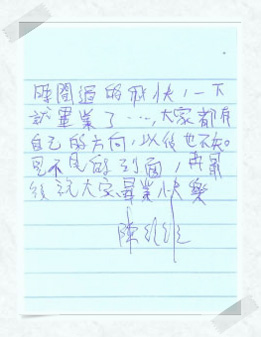 時間過的很快,一下
就畢業了…,大家都有
自己的方向,以後也不知
見不見的到面,再最
後說大家畢業快樂
陳